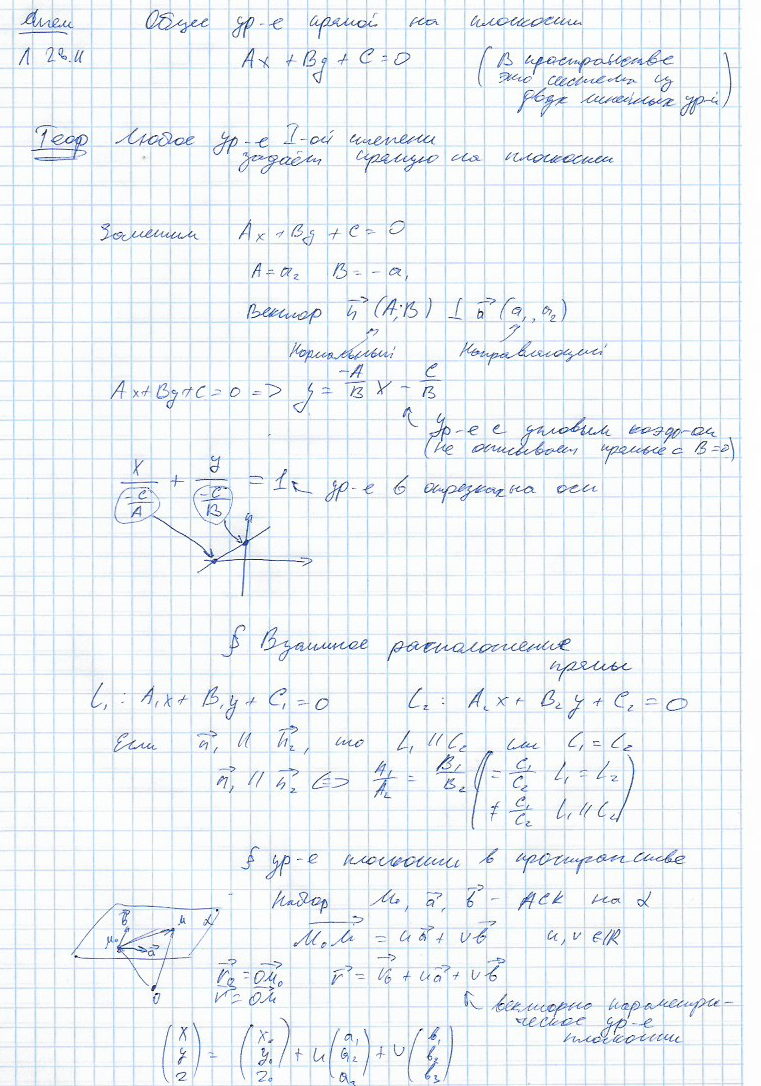 Ангем Общее ур-е прямой на плоскости
Л 28.11 Ax + By + C = 0 (В пространстве
это система из
двух линейных ур-й)
Теор Любое ур-е I-ой степени
задаёт прямую на плоскости
Заметим Ax + By + C = 0
A = a₂ B = -a₁
Вектор n⃗ (A;B) ⊥ a⃗ (a₁, a₂)
Нормальный Направляющий
Ax + By + C = 0 => y = -A/B x - C/B
Ур-е с угловым коэф-ом
(не описывает прямые с B = 0)
x/(-C/A) + y/(-C/B) = 1 ур-е в отрезках на оси
§ Взаимное расположение
прямы
L₁ : A₁x + B₁y + C₁ = 0 L₂ : A₂x + B₂y + C₂ = 0
Если n⃗₁ || n⃗₂, то L₁ || L₂ или L₁ = L₂
n⃗₁ || n⃗₂ <=> A₁/A₂ = B₁/B₂ (= C₁/C₂ L₁ = L₂
≠ C₁/C₂ L₁ || L₂)
§ ур-е плоскости в пространстве
Набор M₀, a⃗, b⃗ - АСК на α
M₀M⃗ = ua⃗ + vb⃗ u, v ∈ ℝ
b⃗ M α
M₀ a⃗
O
r⃗₀ = OM⃗₀ r⃗ = r⃗₀ + ua⃗ + vb⃗
r⃗ = OM⃗
векторно параметри-
ческое ур-е
плоскости
(x y z) = (x₀ y₀ z₀) + u (a₁ a₂ a₃) + v (b₁ b₂ b₃)